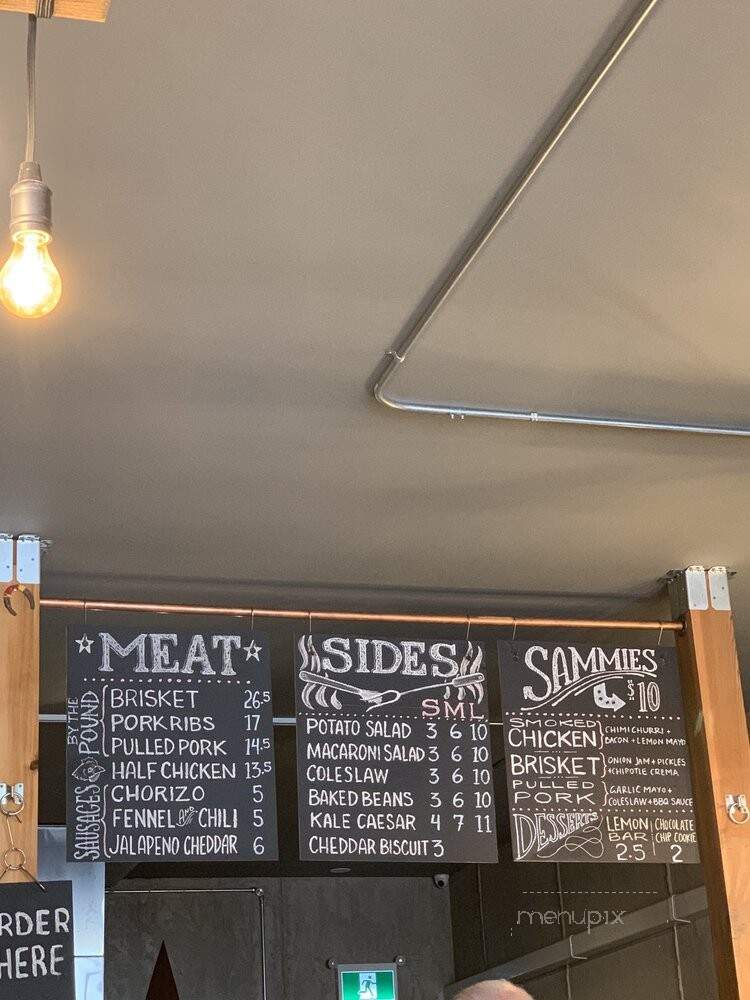 MEAT
BY THE POUND
BRISKET 26.5
PORK RIBS 17
PULLED PORK 14.5
HALF CHICKEN 13.5
SAUSAGES
CHORIZO 5
FENNEL AND CHILI 5
JALAPENO CHEDDAR 6
SIDES
S M L
POTATO SALAD 3 6 10
MACARONI SALAD 3 6 10
COLESLAW 3 6 10
BAKED BEANS 3 6 10
KALE CAESAR 4 7 11
CHEDDAR BISCUIT 3
SAMMIES
10
SMOKED CHICKEN
CHIMICHURRI +
BACON + LEMON MAYO
BRISKET
ONION JAM + PICKLES
+ CHIPOTLE CREMA
PULLED PORK
GARLIC MAYO +
COLESLAW + BBQ SAUCE
DESSERTS
LEMON BAR 2.5
CHOCOLATE CHIP COOKIE 2
RDER
HERE
menupix